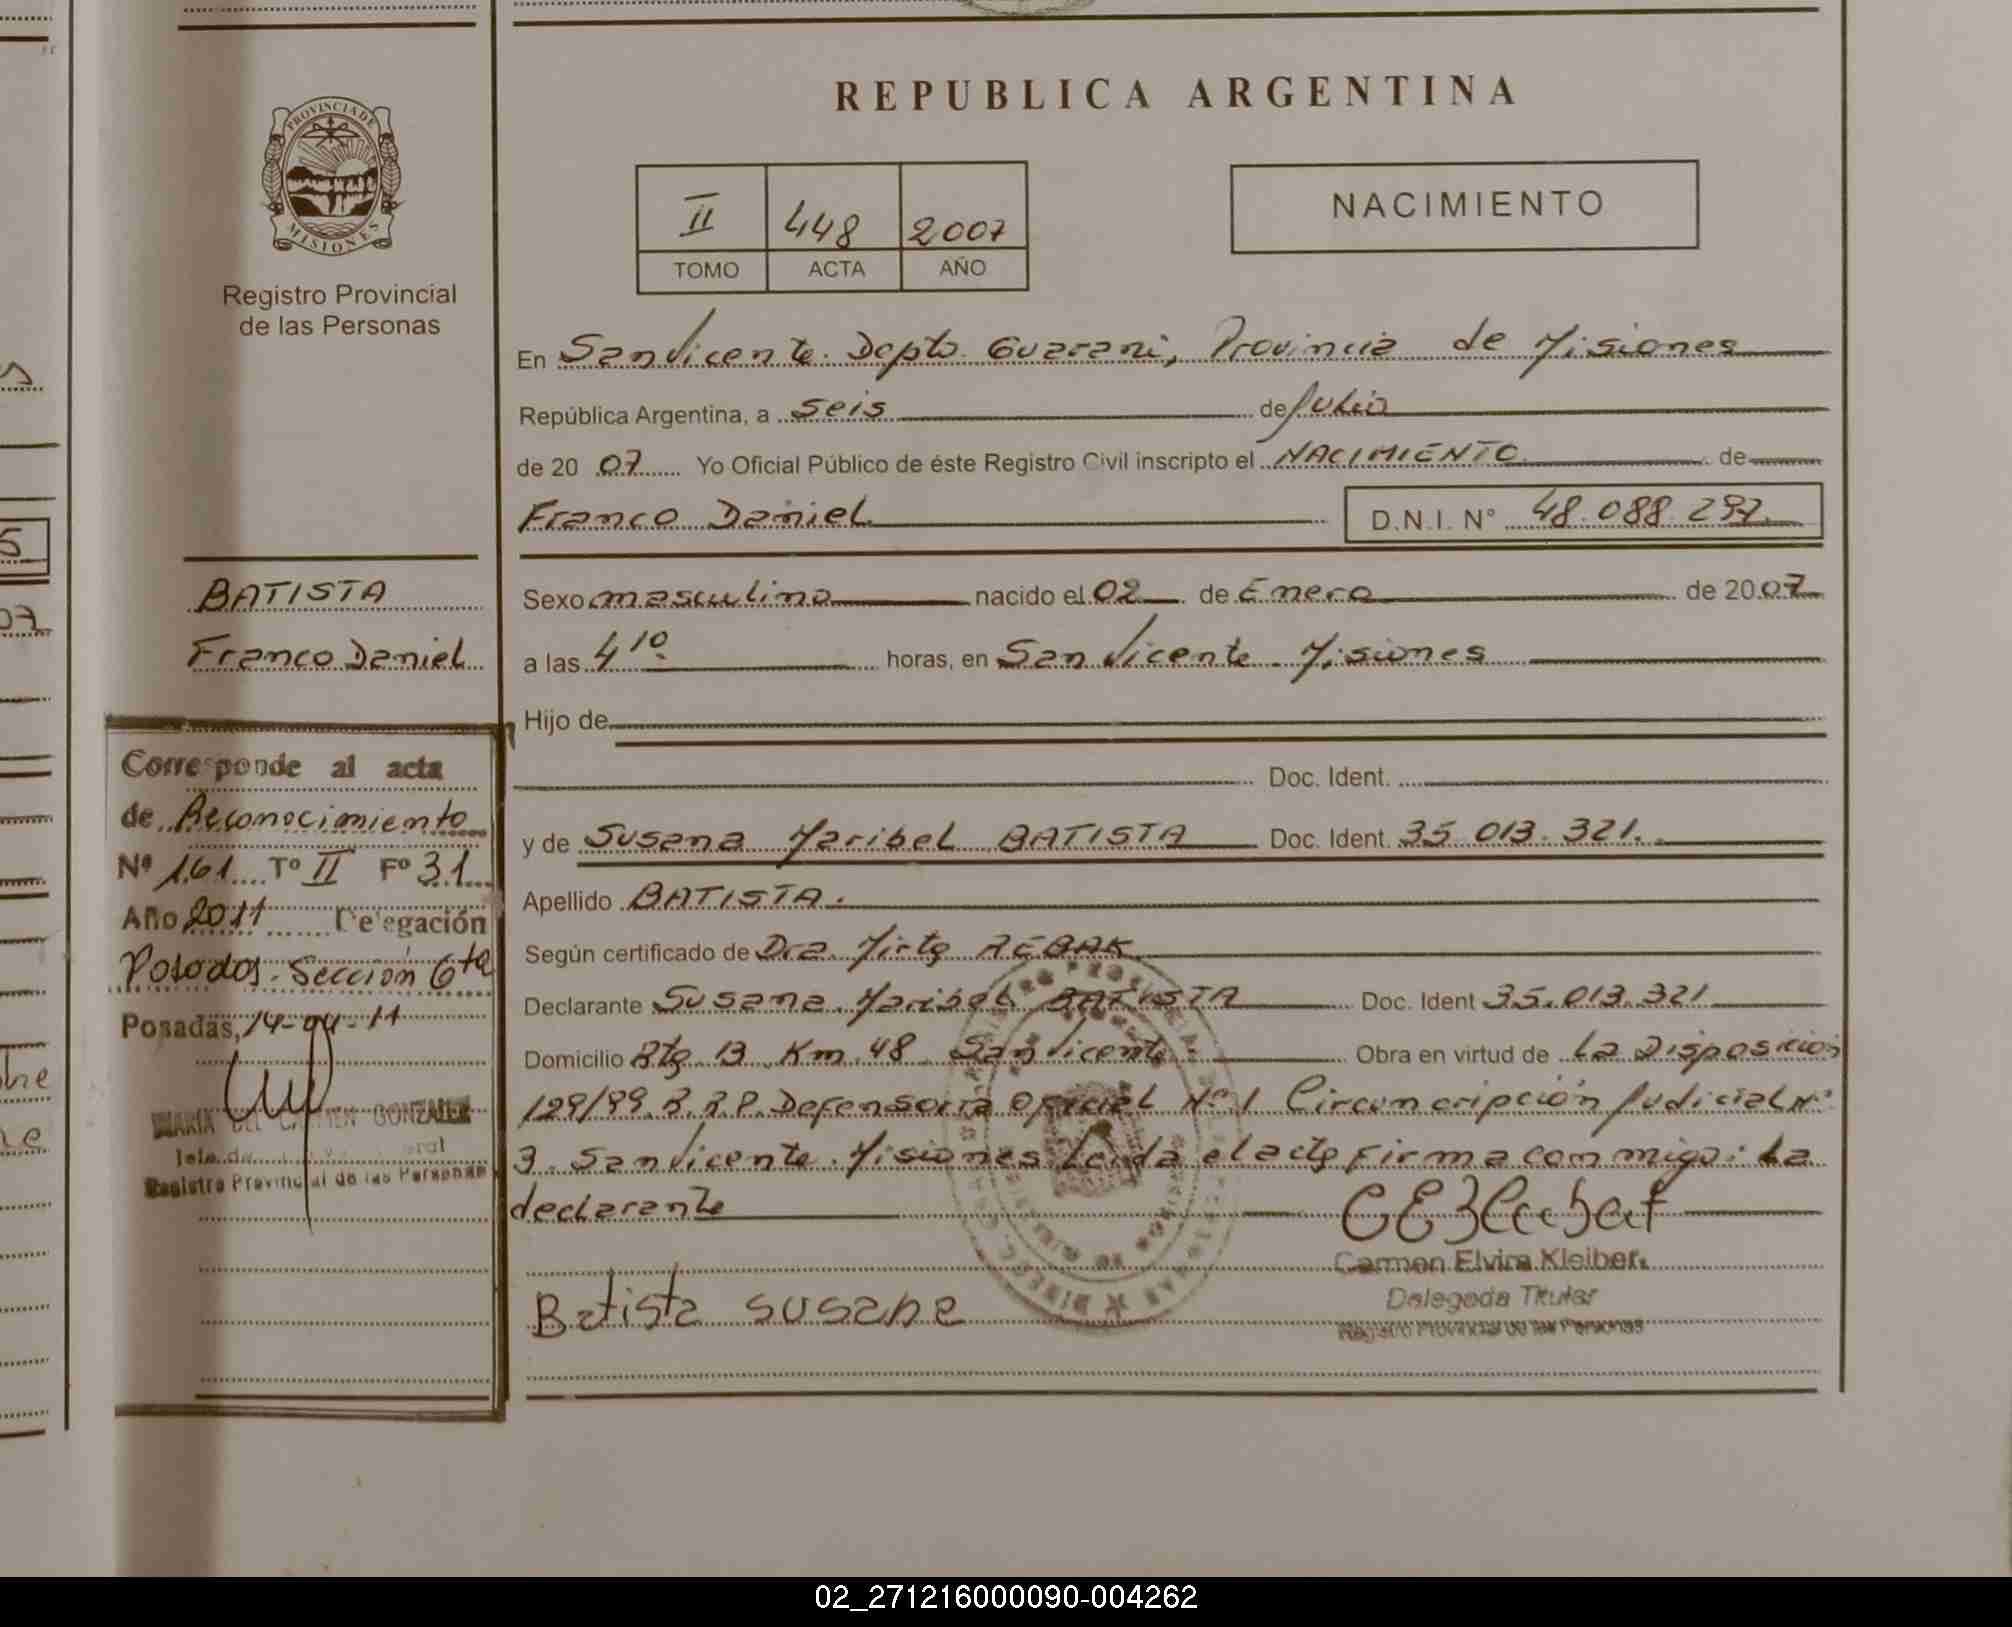 REPUBLICA ARGENTINA
PROVINCIA DE
MISIONES
Registro Provincial
de las Personas
II 448 2007
TOMO ACTA AÑO
NACIMIENTO
En San Vicente. Depto. Guarani, Provincia de Misiones
República Argentina, a seis de Julio
de 20 07 Yo Oficial Público de éste Registro Civil inscripto el NACIMIENTO de
Franco Daniel D.N.I. N° 48.088.297
BATISTA
Franco Daniel
Sexo masculino nacido el 02 de Enero de 2007
a las 4 10 horas, en San Vicente Misiones
Hijo de
Doc. Ident.
y de Susana Maribel BATISTA Doc. Ident. 35.013.321.
Apellido BATISTA.
Según certificado de Dra. Mirta REBAK
Declarante Susana Maribel BATISTA Doc. Ident 35.013.321
Domicilio Rta 13 Km 48 San Vicente. Obra en virtud de La Disposicion
129/99 R.R.P. Defensoría Oficial N° 1 Circumcripción Judicial N°
3. San Vicente. Misiones Leida el acta Firma conmigo: La
declarante
Batista susana
Carmen Elvira Kleiber
Delegada Titular
Registro Provincial de las Personas
Corresponde al acta
de Reconocimiento
N° 161 T° II F° 31
Año 2011 Delegación
Posadas. Sección 6ta
Posadas, 14-04-11
MARIA DEL CARMEN GONZALEZ
Registro Provincial de las Personas
02_271216000090-004262